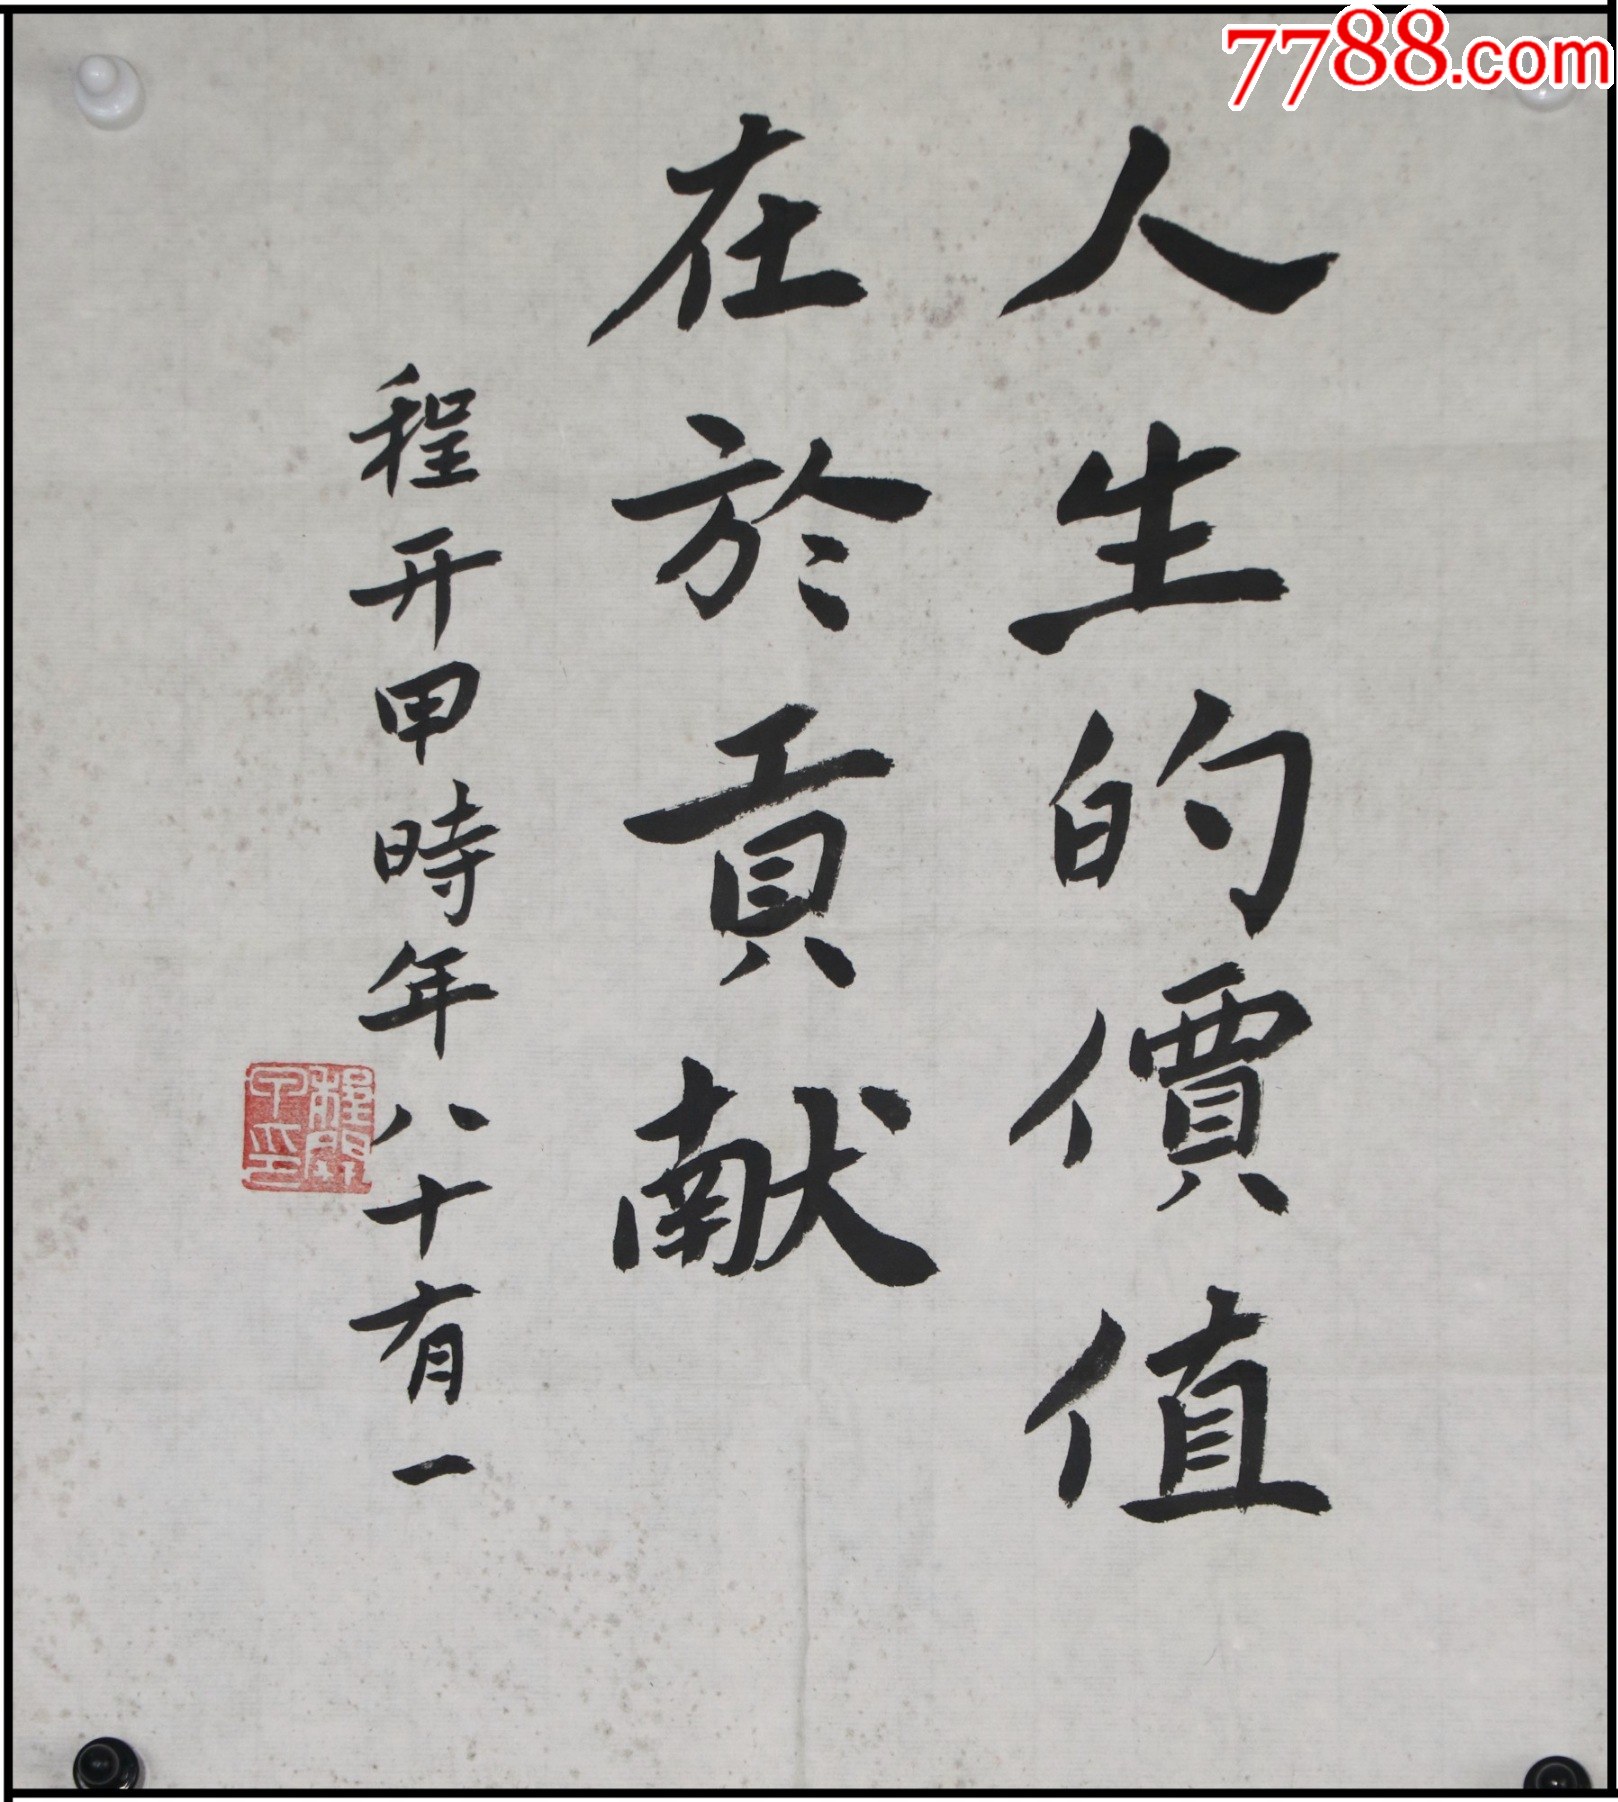 7788.com
人生的價值
在於貢献
程开甲時年八十有一
程開甲印